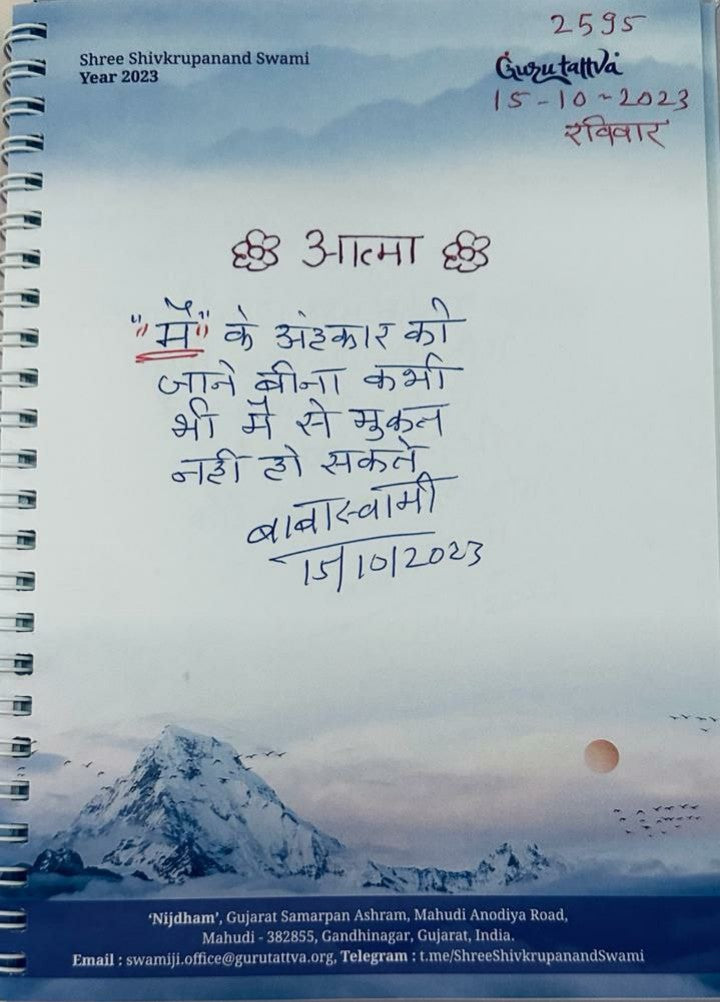 2595
Shree Shivkrupanand Swami
Year 2023
Gurutattva
15-10-2023
रविवार
आत्मा
"मैं" के अंहकार को
जाने बीना कभी
भी मैं से मुक्त
नही हो सकते
बाबास्वामी
15/10/2023
'Nijdham', Gujarat Samarpan Ashram, Mahudi Anodiya Road,
Mahudi - 382855, Gandhinagar, Gujarat, India.
Email : swamiji.office@gurutattva.org, Telegram : t.me/ShreeShivkrupanandSwami